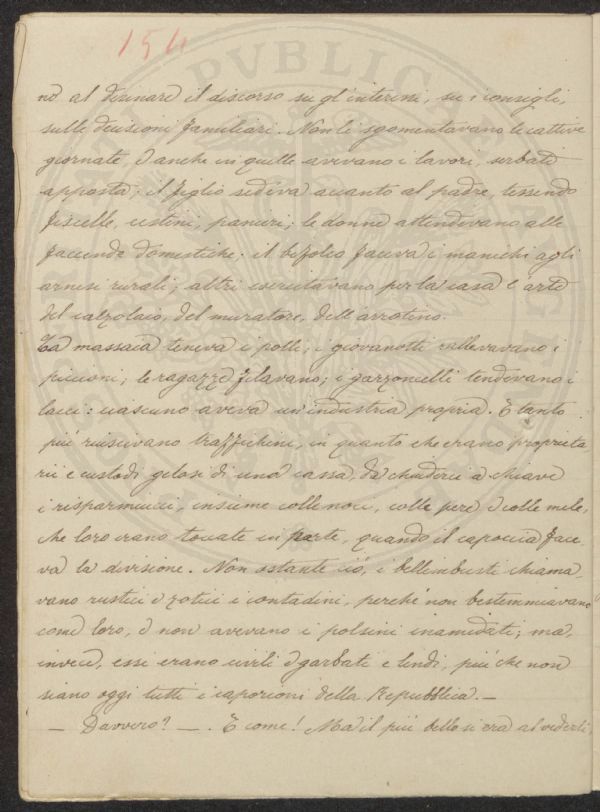 154
no al desinare il discorso su gl'interessi, su i consigli,
sulle decisioni familiari. Non li sgomentavano le cattive
giornate, o anche in quelle avevano i lavori, serbati
apposta; il figlio sedeva accanto al padre, tessendo
fiscelle, cestini, panieri; le donne attendevano alle
faccende domestiche; il bifolco faceva i manichi agli
arnesi rurali; altri esercitavano per la casa l'arte
del calzolaio, del muratore, dell'arrotino.
La massaia teneva i polli; i giovanotti allevavano i
piccioni; le ragazze filavano; i garzoncelli tendevano i
lacci: ciascuno aveva un'industria propria. E tanto
più riuscivano trafficchini, in quanto che erano proprieta
rii e custodi gelosi di una cassa, da chiuderci a chiave
i risparmucci, insieme colle noci, colle pere e colle mele,
che loro erano toccate in parte, quando il capoccia face-
va la divisione. Non ostante ciò, i bellimbusti chiama,
vano rustici e zotici i contadini, perchè non bestemmiavano
come loro, e non avevano i polsini inamidati; ma,
invece, essi erano civili e garbati e lindi, più che non
siano oggi tutti i caporioni della Repubblica. —
— Davvero? — . E come! Ma il più bello si era al vederli,
PVBLIC